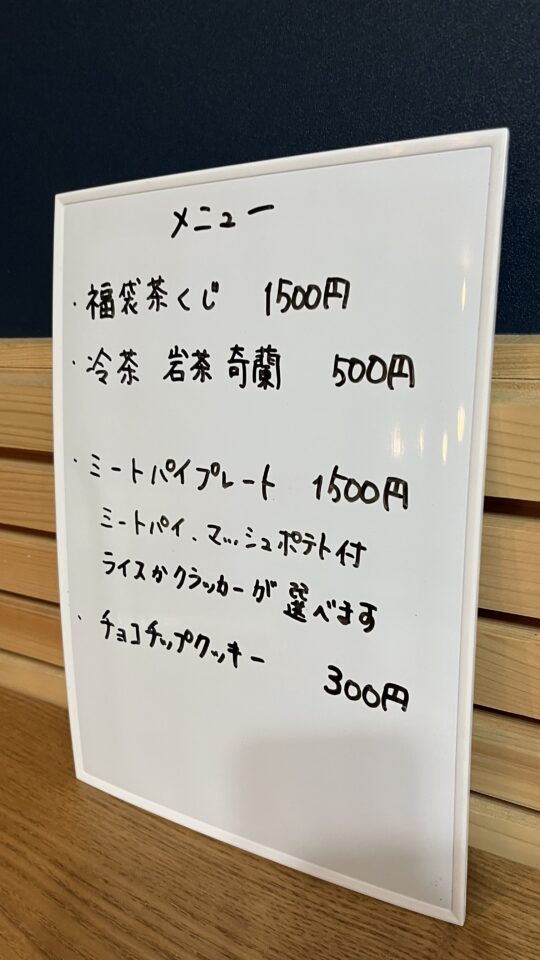 メニュー
・福袋茶くじ 1500円
・冷茶 岩茶 奇蘭 500円
・ミートパイプレート 1500円
ミートパイ、マッシュポテト付
ライスかクラッカーが選べます
・チョコチップクッキー 300円